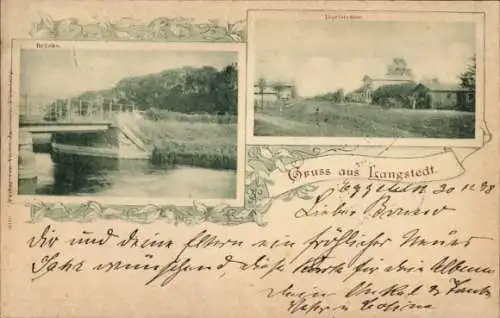 Brücke.
Dorfstrasse
Gruss aus Langstedt.
Eggebek 20 12 98
Lieber
Dir und deine Eltern ein fröhliches Neues
Jahr wünschend, diese Karte für dein Album
Dein Onkel & Tante